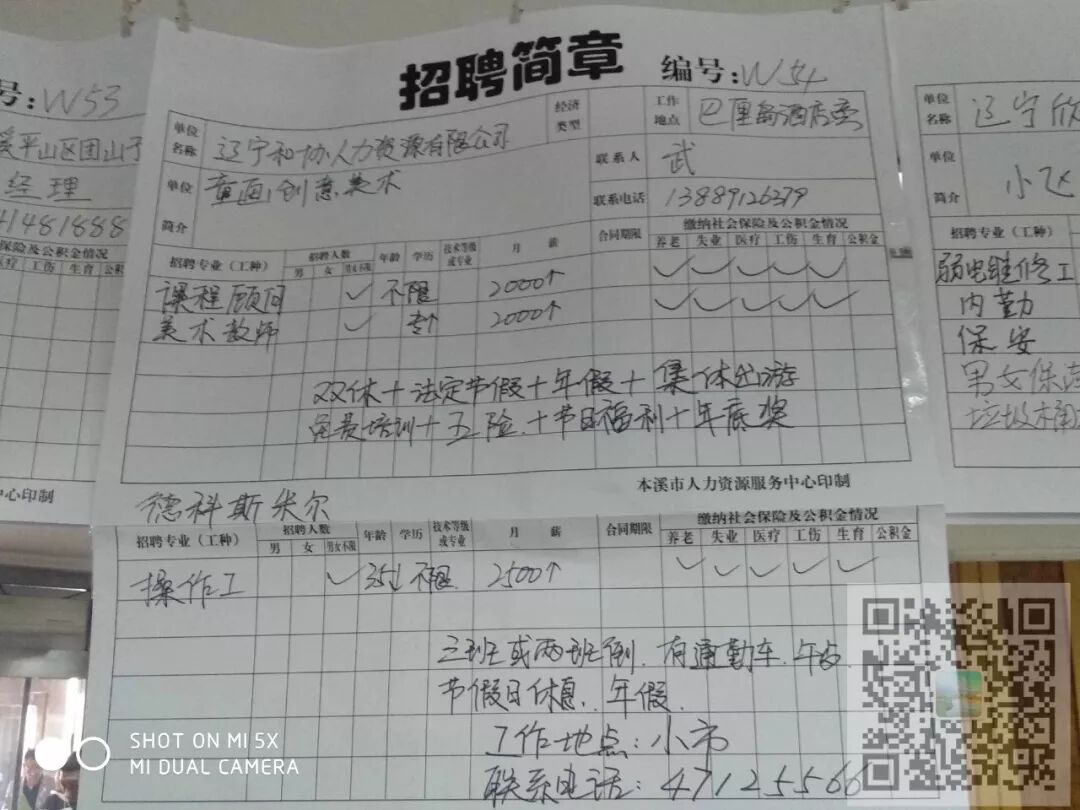 号:W53
溪平山区团山子
经理
41481888
保险及公积金情况
医疗 工伤 生育 公积
中心印制
招聘简章
编号:W54
单位名称 辽宁和协人力资源有限公司 经济类型 工作地点 巴厘岛酒店旁
单位简介 童画创意美术 联系人 武
联系电话 13889126379
招聘专业(工种) 招聘人数 年龄 学历 技术等级或专业 月 薪 合同期限 缴纳社会保险及公积金情况
男 女 男女不限 养老 失业 医疗 工伤 生育 公积金
课程顾问 ✓ 不限 2000↑ ✓ ✓ ✓ ✓ ✓
美术教师 ✓ 专↑ 2000↑ ✓ ✓ ✓ ✓ ✓
双休+法定节假+年假+集体出游
免费培训+五险+节日福利+年底奖
本溪市人力资源服务中心印制
德科斯米尔
招聘专业(工种) 招聘人数 年龄 学历 技术等级或专业 月 薪 合同期限 缴纳社会保险及公积金情况
男 女 男女不限 养老 失业 医疗 工伤 生育 公积金
操作工 ✓ 35↓ 不限 2500↑ ✓ ✓ ✓ ✓ ✓
三班或两班倒.有通勤车.午台
节假日休息..年假.
工作地点:小市
联系电话:47125566
单位名称 辽宁欣
单位简介 小飞
招聘专业(工种)
弱电维修工
内勤
保安
男女保洁
垃圾桶
SHOT ON MI 5X
MI DUAL CAMERA